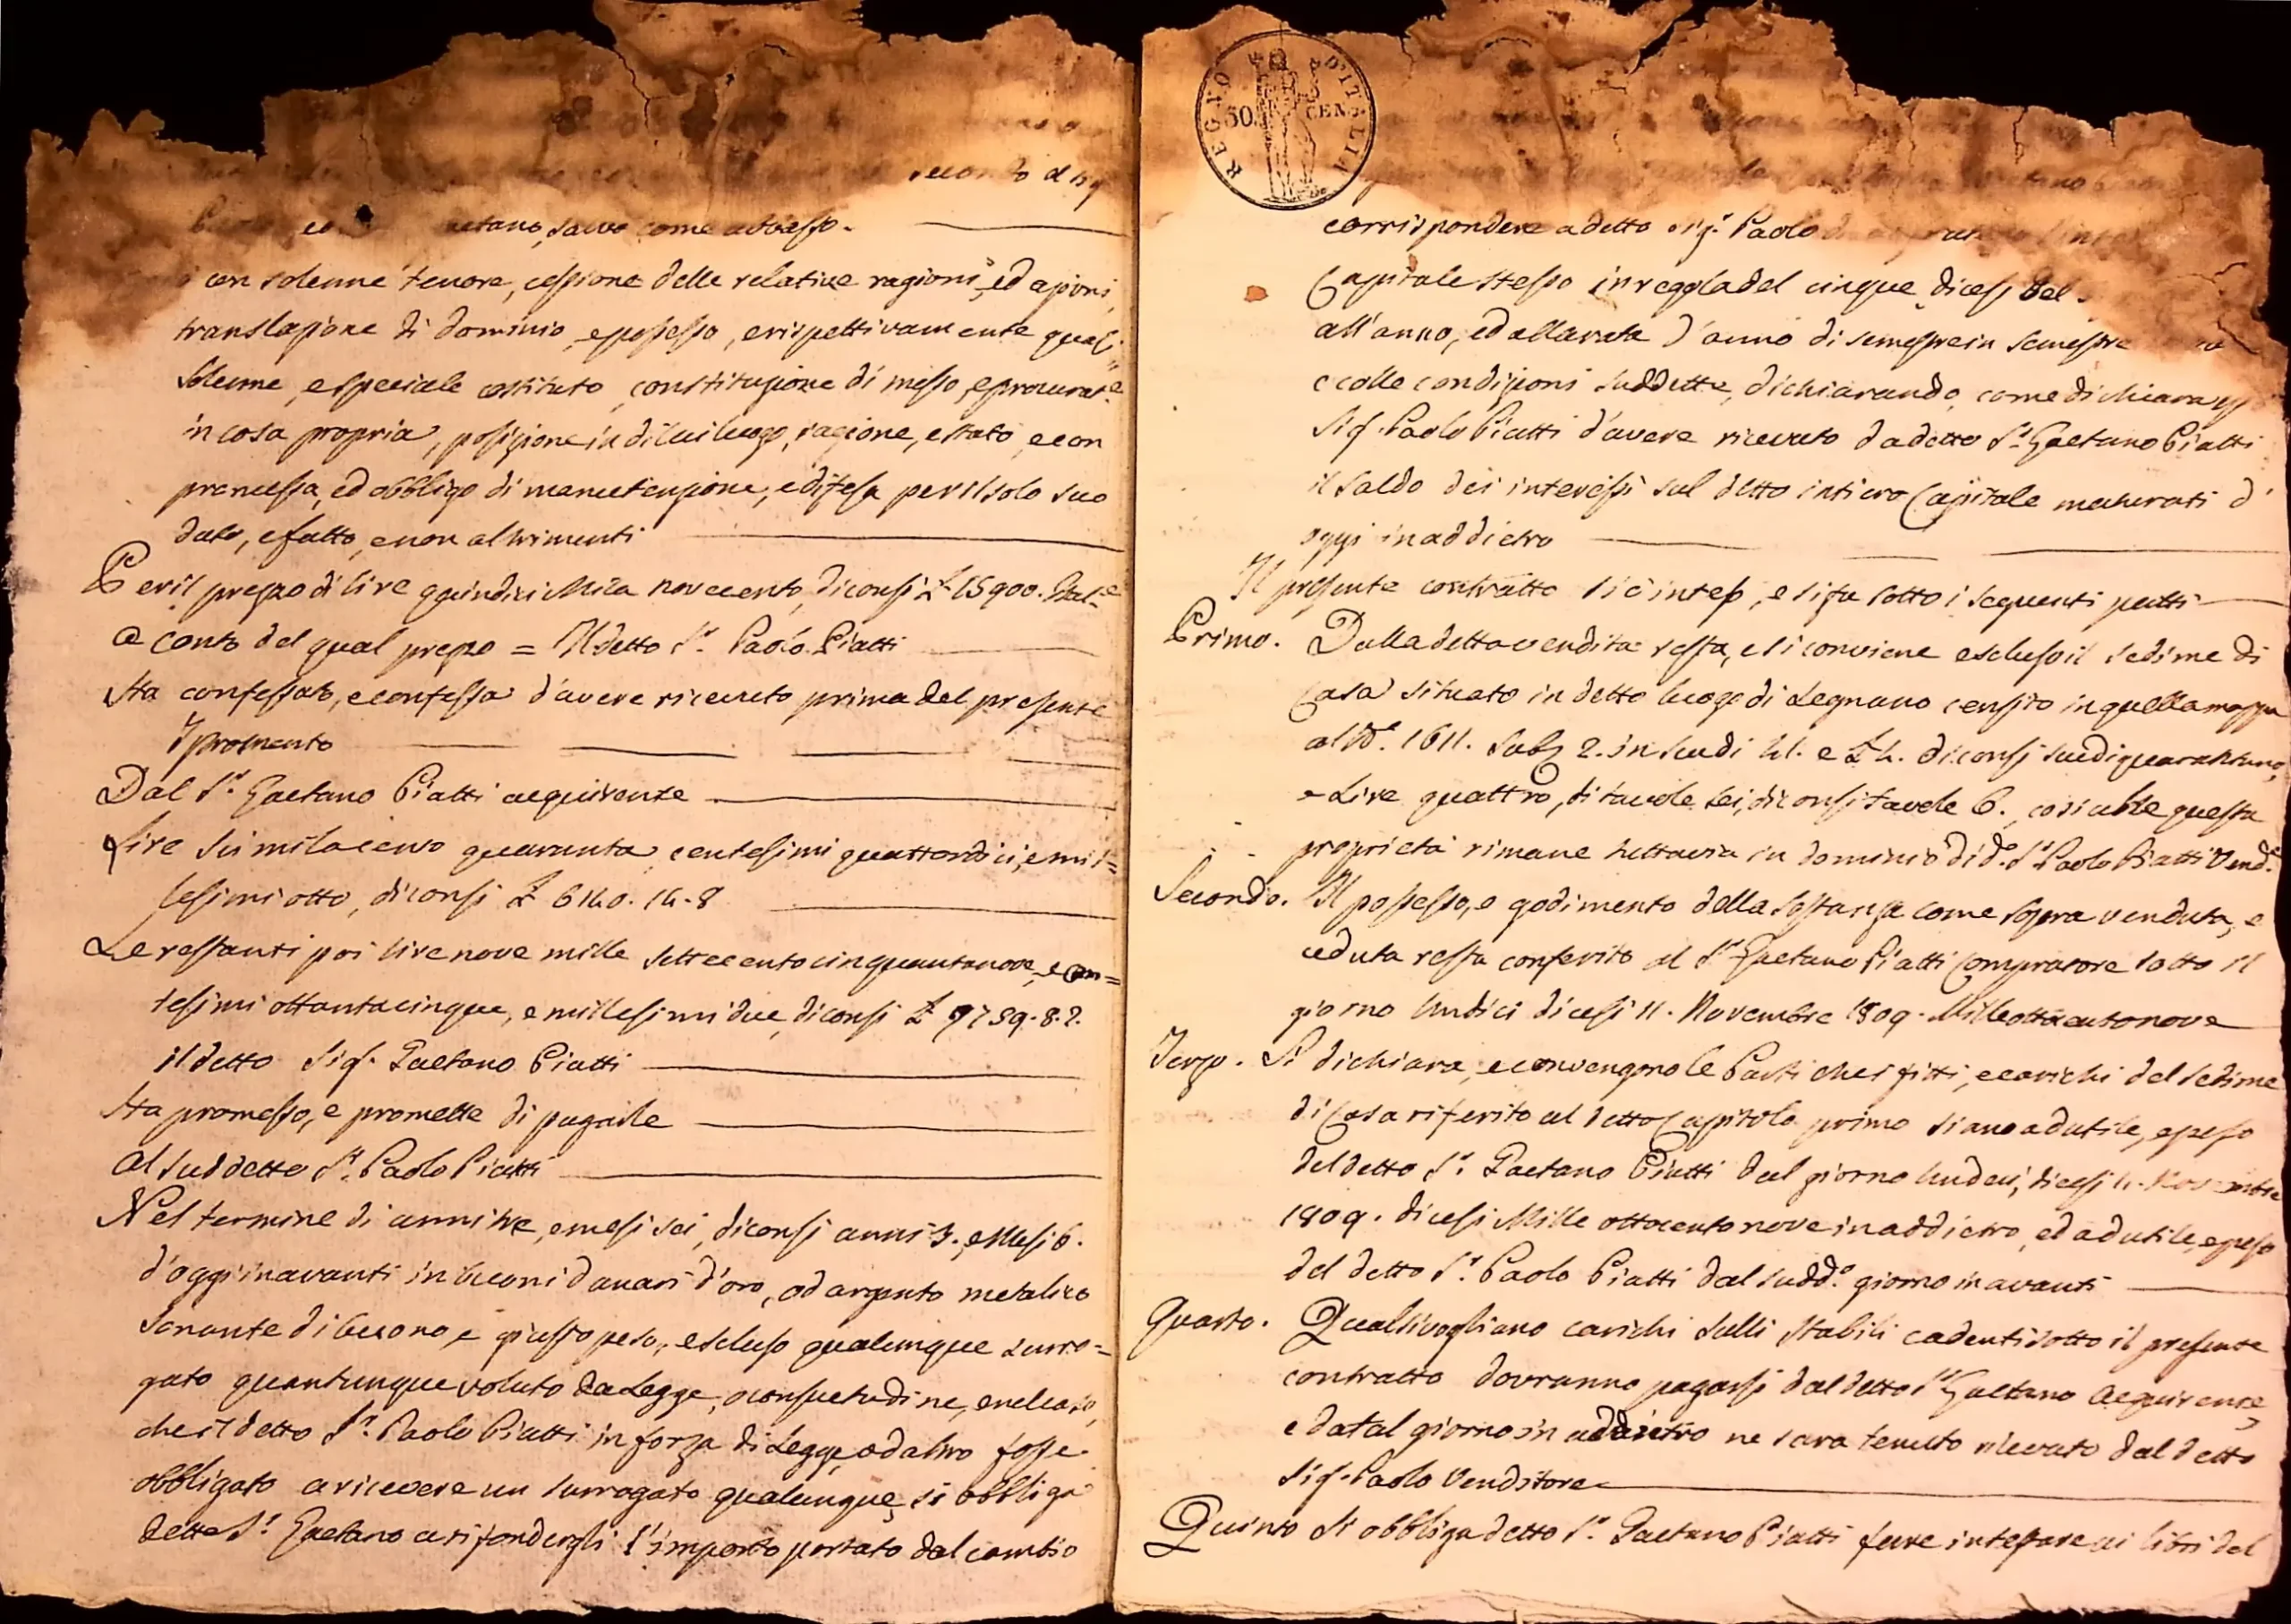 secondo
Gaetano, salvo come abbasso.
con solenne tenore, cessione delle relative ragioni, ed azioni,
translazione di dominio, e possesso, e rispettivamente
solenne, e speciale costituto, constituzione di messo, e procurat.e
in cosa propria, posizione in di lui luogo, ragione, e stato, e con
promessa, ed obbligo di manutenzione, e difesa per il solo suo
dato, e fatto, e non altrimenti
Per il prezzo di lire quindici Mila novecento, diconsi £ 15900. Ital.e
a conto del qual prezzo = Il detto S.r Paolo Piatti
Sta confessato, e confessa d'avere ricevuto prima del presente
Ipromento
Dal S.r Gaetano Piatti acquirente
Lire sei mila cento quaranta, centesimi quattordici, e mil=
lesimi otto, diconsi £ 6140. 14. 8
Le restanti poi lire nove mille settecento cinquantanove, e cen=
tesimi ottantacinque, e millesimi due, diconsi £ 9759. 8. 2.
il detto Sig.r Gaetano Piatti
Sta promesso, e promette di pagarle
Al suddetto S.r Paolo Piatti
Nel termine di anni tre, e mesi sei, diconsi anni 3. e Mesi 6.
d'oggi in avanti in buoni danari d'oro, od argento metalico
sonante di buono, e giusto peso, escluso qualunque surro=
gato quantunque voluto da Legge, o consuetudine, e nel caso,
che il detto S.r Paolo Piatti in forza di Legge, od altro fosse
obbligato a ricevere un surrogato qualunque, si obbliga
detto S.r Gaetano a rifondergli l'importo portato dal cambio
REGNO D'ITALIA
50. CEN.
corrispondere a detto Sig.r Paolo
Capitale stesso in regola del cinque, dicesi
all'anno, ed alla rata d'anno di semestre in semestre
e colle condizioni suddette, dichiarando, come dichiara
Sig.r Paolo Piatti d'avere ricevuto da detto S.r Gaetano Piatti
il saldo dei interessi sul detto intiero Capitale maturati d'
oggi in addietro
Il presente contratto si è inteso, e si fa sotto i seguenti patti
Primo. Dalla detta vendita resta, e si conviene escluso il sedime di
Casa situato in detto luogo di Legnano censito in quella mappa
al N.o 1611. Sub. 2. in scudi 41. e £ 4. diconsi scudi quarantuno,
e Lire quattro, di tavole sei, diconsi tavole 6., quale questa
proprietà rimane tuttavia in dominio di d.o S.r Paolo Piatti Vend.e
Secondo. Il possesso, e godimento della Sostanza come sopra venduta, e
ceduta resta conferito al S.r Gaetano Piatti Compratore sotto il
giorno Undici dicesi 11. Novembre 1809. Mille ottocento nove
Terzo. Si dichiara, e convengono le Parti che i fitti, e carichi del sedime
di Casa riferito al detto Capitolo primo siano ad utile, e peso
del detto S.r Gaetano Piatti dal giorno Undeci, dicesi 11. Novembre
1809. dicesi Mille ottocento nove in addietro, ed ad utile, e peso
del detto S.r Paolo Piatti dal sudd.o giorno in avanti
Quarto. Qualsivogliano carichi sulli stabili cadenti sotto il presente
contratto dovranno pagarsi dal detto S.r Gaetano Acquirente,
e da tal giorno in addietro ne sara tenuto rilevato dal detto
Sig.r Paolo Venditore
Quinto Si obbliga detto S.r Gaetano Piatti fare intestare ai libri del